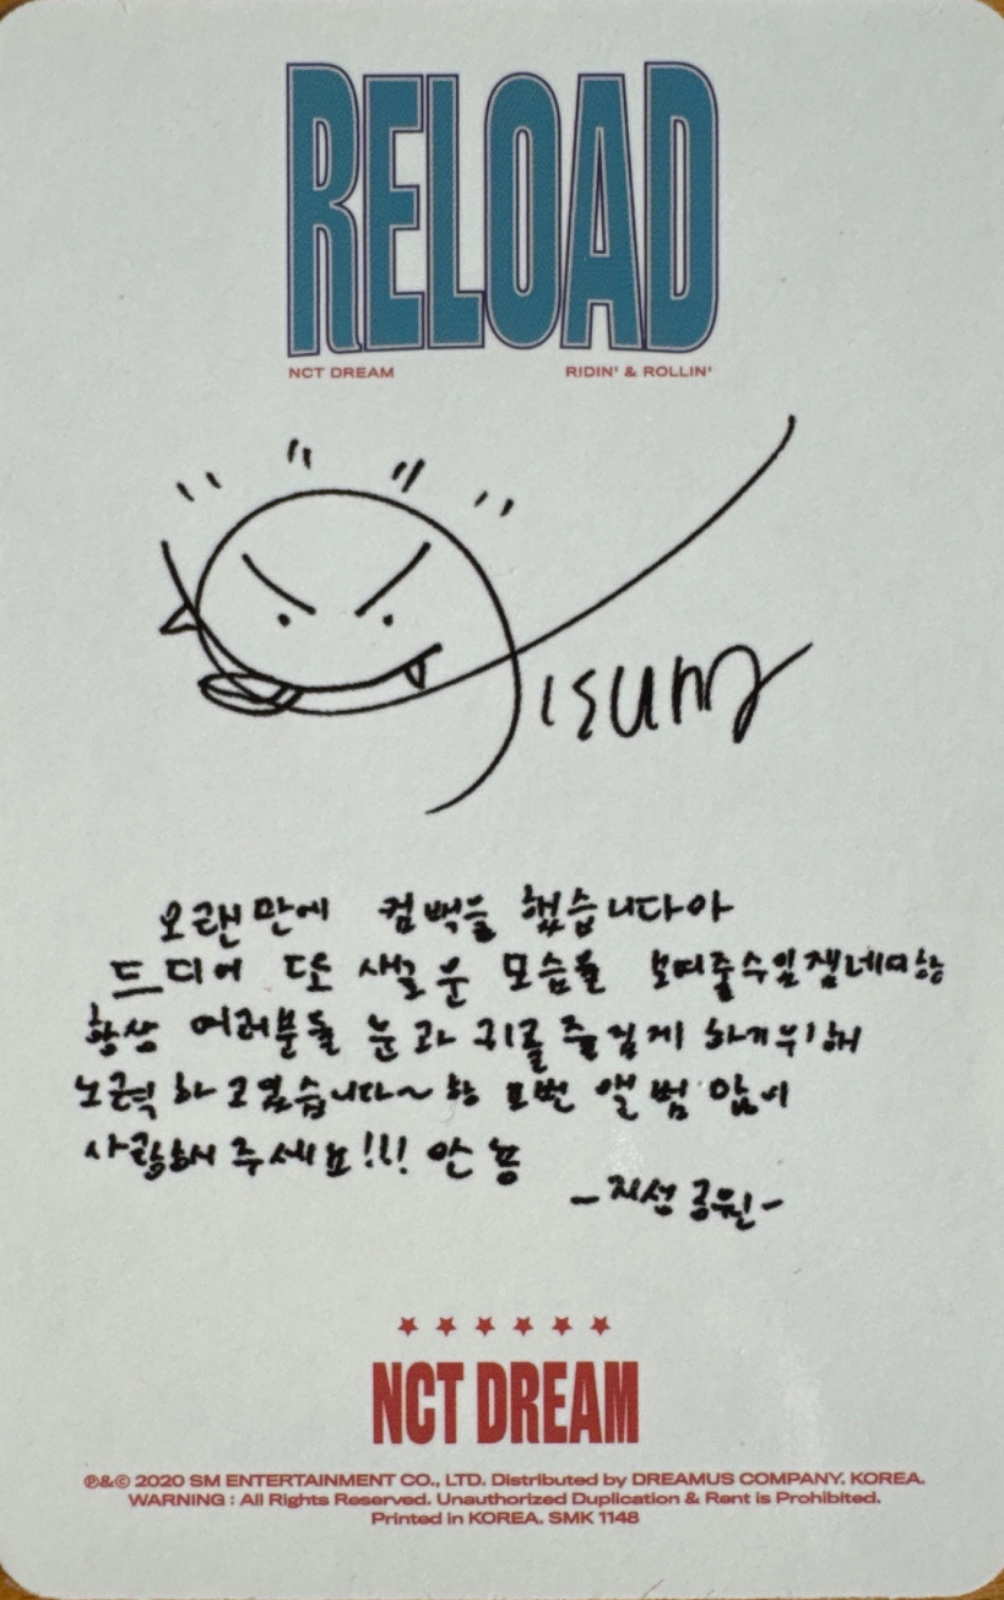 RELOAD
NCT DREAM RIDIN' & ROLLIN'
Jisung
오랜만에 컴백을 했습니다아
드디어 또 새로운 모습을 보여줄수있겠네여항
항상 여러분들 눈과 귀를 즐겁게 하기위해
노력하고있습니다~ 항 요번 앨범 많이
사랑해 주세요!!! 안뇽
-지성 공원-
NCT DREAM
℗&© 2020 SM ENTERTAINMENT CO., LTD. Distributed by DREAMUS COMPANY. KOREA.
WARNING : All Rights Reserved. Unauthorized Duplication & Rent is Prohibited.
Printed in KOREA. SMK 1148